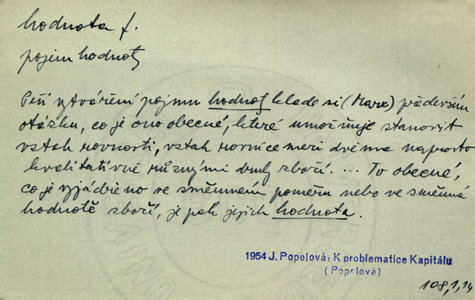 hodnota f.
pojem hodnoty
Při vytváření pojmu hodnoty klade si (Marx) především
otázku, co je ono obecné, které umožňuje stanovit
vztah rovnosti, vztah rovnice mezi dvěma naprosto
kvalitativně různými druhy zboží. ... To obecné,
co je vyjádřeno ve směnném poměru nebo ve směnné
hodnotě zboží, je pak jejich hodnota.
1954 J. Popelová: K problematice Kapitálu
(Popelová)
108,1,14